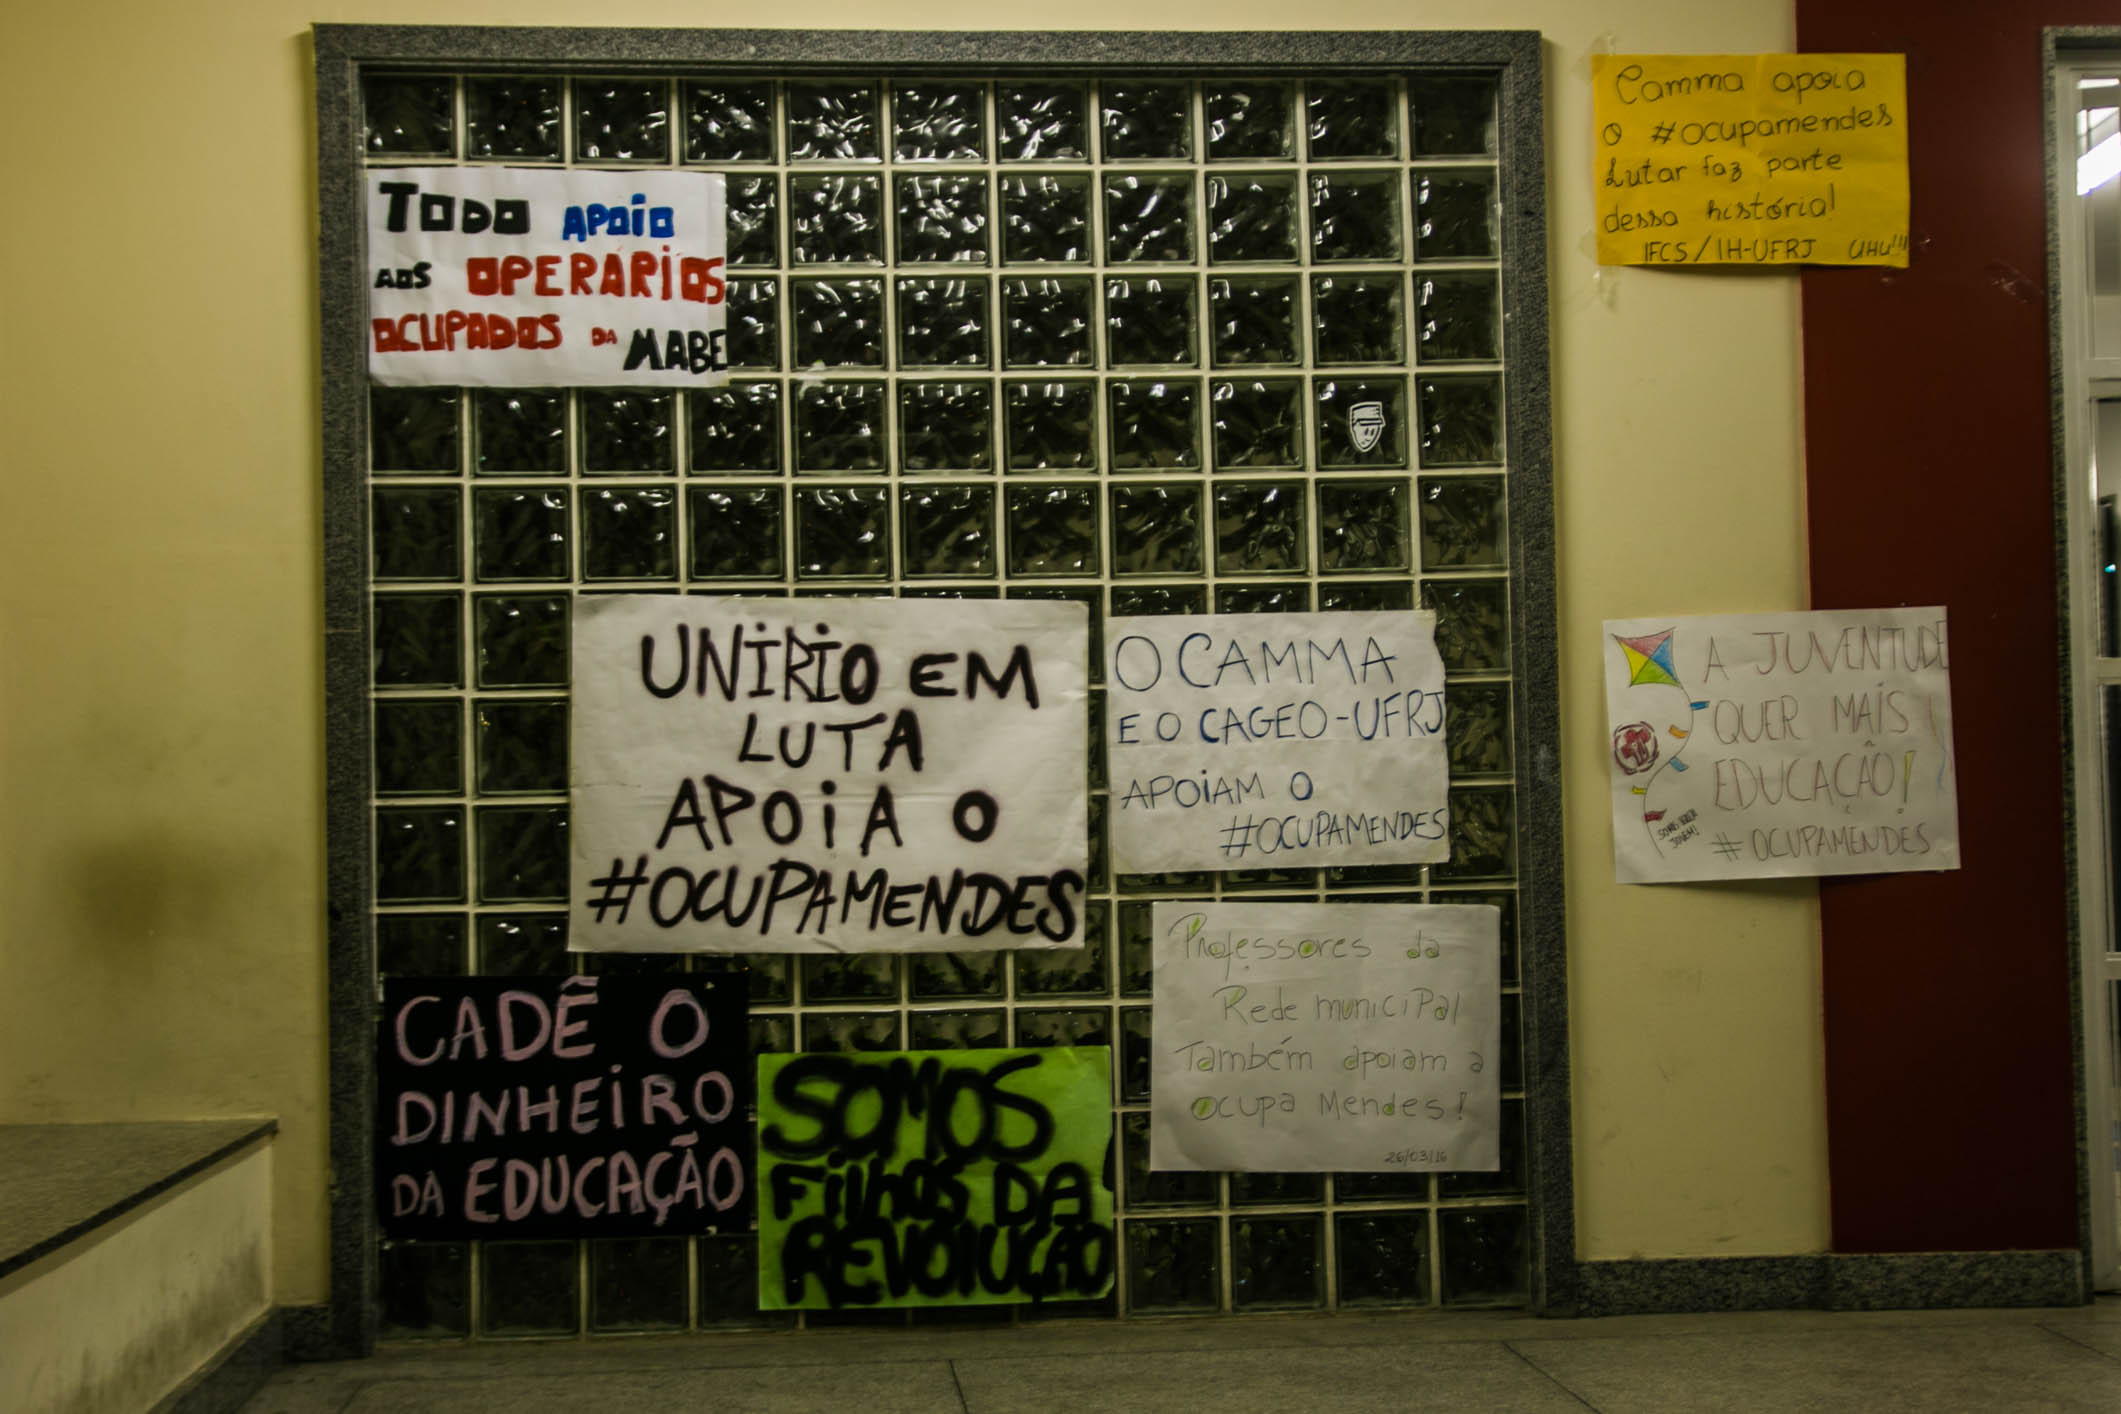 TODO APOIO
AOS OPERÁRIOS
OCUPADOS DA MABE
Camma apoia
o #ocupamendes
Lutar faz parte
dessa história!
IFCS/IH-UFRJ UHU!!!
UNIRIO EM
LUTA
APOIA O
#OCUPAMENDES
O CAMMA
E O CAGEO-UFRJ
APOIAM O
#OCUPAMENDES
A JUVENTUDE
QUER MAIS
EDUCAÇÃO!
#OCUPAMENDES
Professores da
Rede municipal
Também apoiam a
Ocupa Mendes!
26/03/16
CADÊ O
DINHEIRO
DA EDUCAÇÃO
SOMOS
FilhOS DA
REVOlUÇÃO